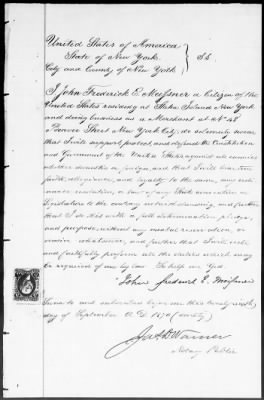 United States of America
State of New York. } S.S.
City and County of New York
I John Frederick E. Meissner a Citizen of the
United States residing at Staten Island New York
and doing business as a Merchant at No 48
Street New York City; do solemnly swear
that I will support, protect, and defend the Constitution
and Government of the United States against all enemies
whether domestic or foreign, and that I will bear true
faith, allegiance, and loyalty to the same, any
resolution, or law of any State convention or
Legislature to the contrary notwithstanding, and further
that I do this with a full determination, pledge,
and purpose, without any mental reservation or
evasion whatsoever, and further that I will well
and faithfully perform all the duties which may
be required of me by law. So help me God.
John Frederick E. Meissner
Sworn to and subscribed before me this
day of September A. D. 1870
Warner
Notary Public